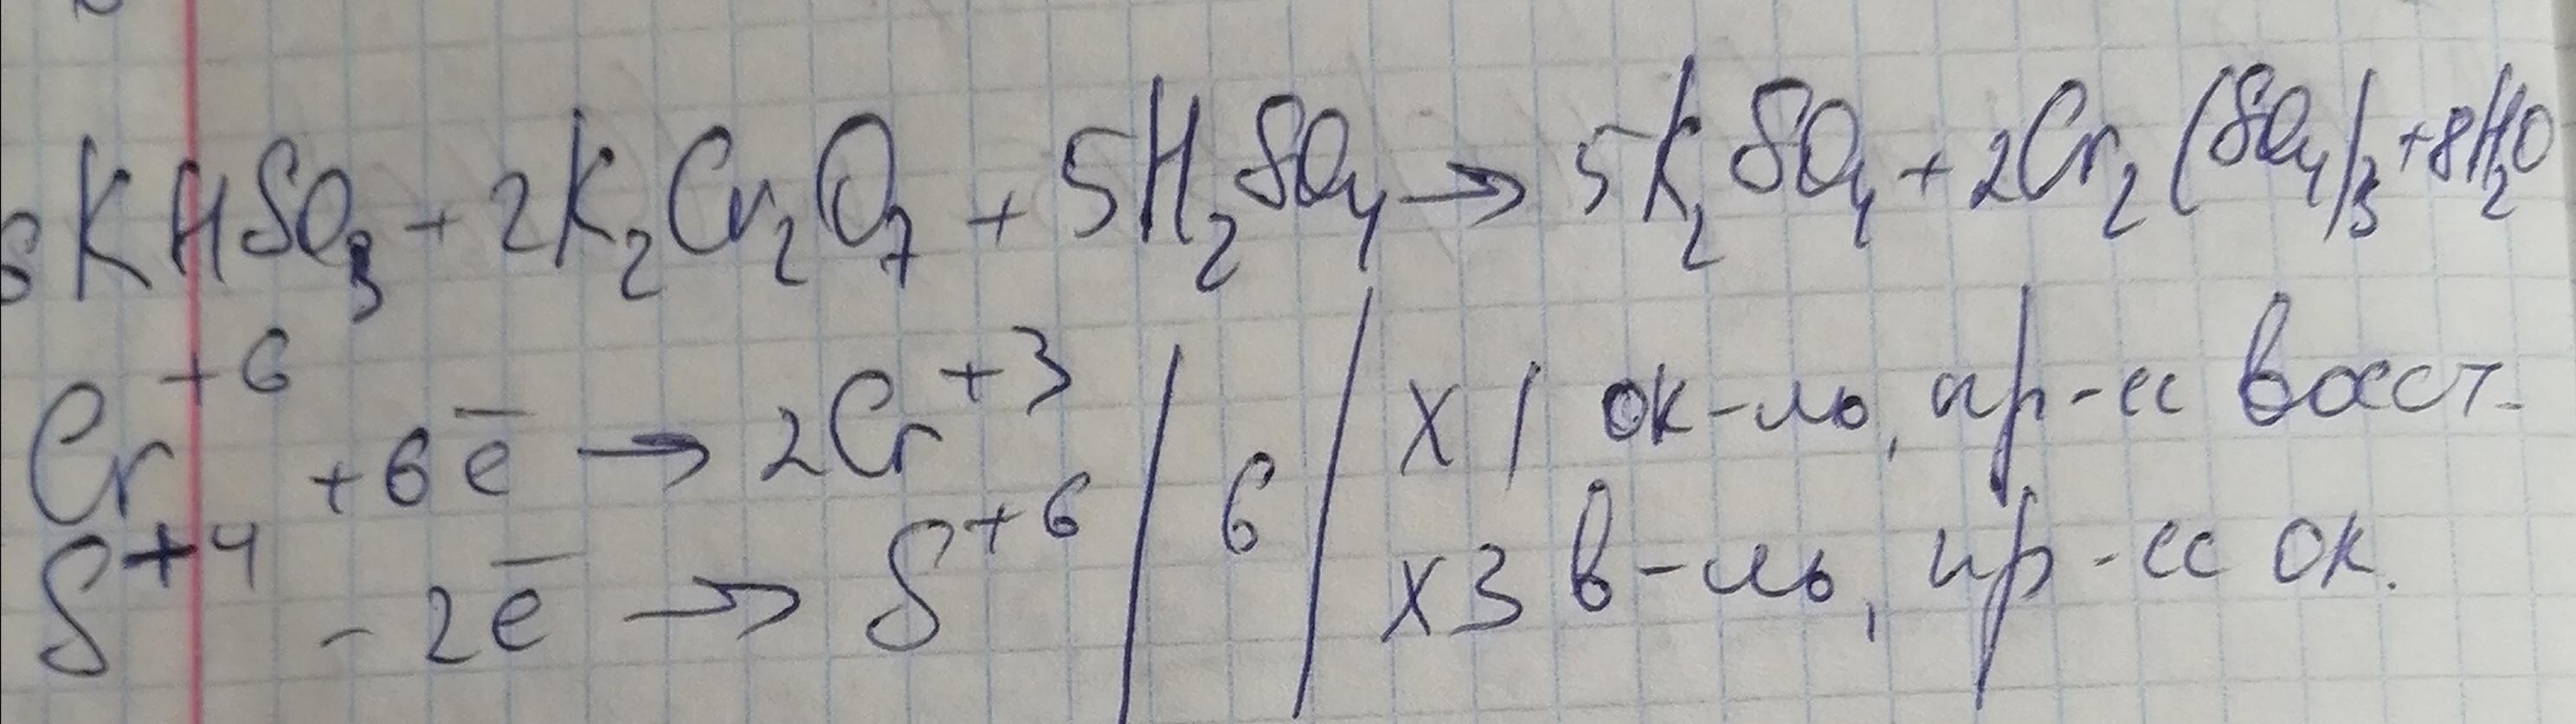 6KHSO₃ + 2K₂Cr₂O₇ + 5H₂SO₄ → 5K₂SO₄ + 2Cr₂(SO₄)₃ + 8H₂O
Cr⁺⁶ + 6e̅ → 2Cr⁺³ | 6 | х1 ок-ль, пр-сс восст.
S⁺⁴ - 2e̅ → S⁺⁶ | | х3 в-ль, пр-сс ок.